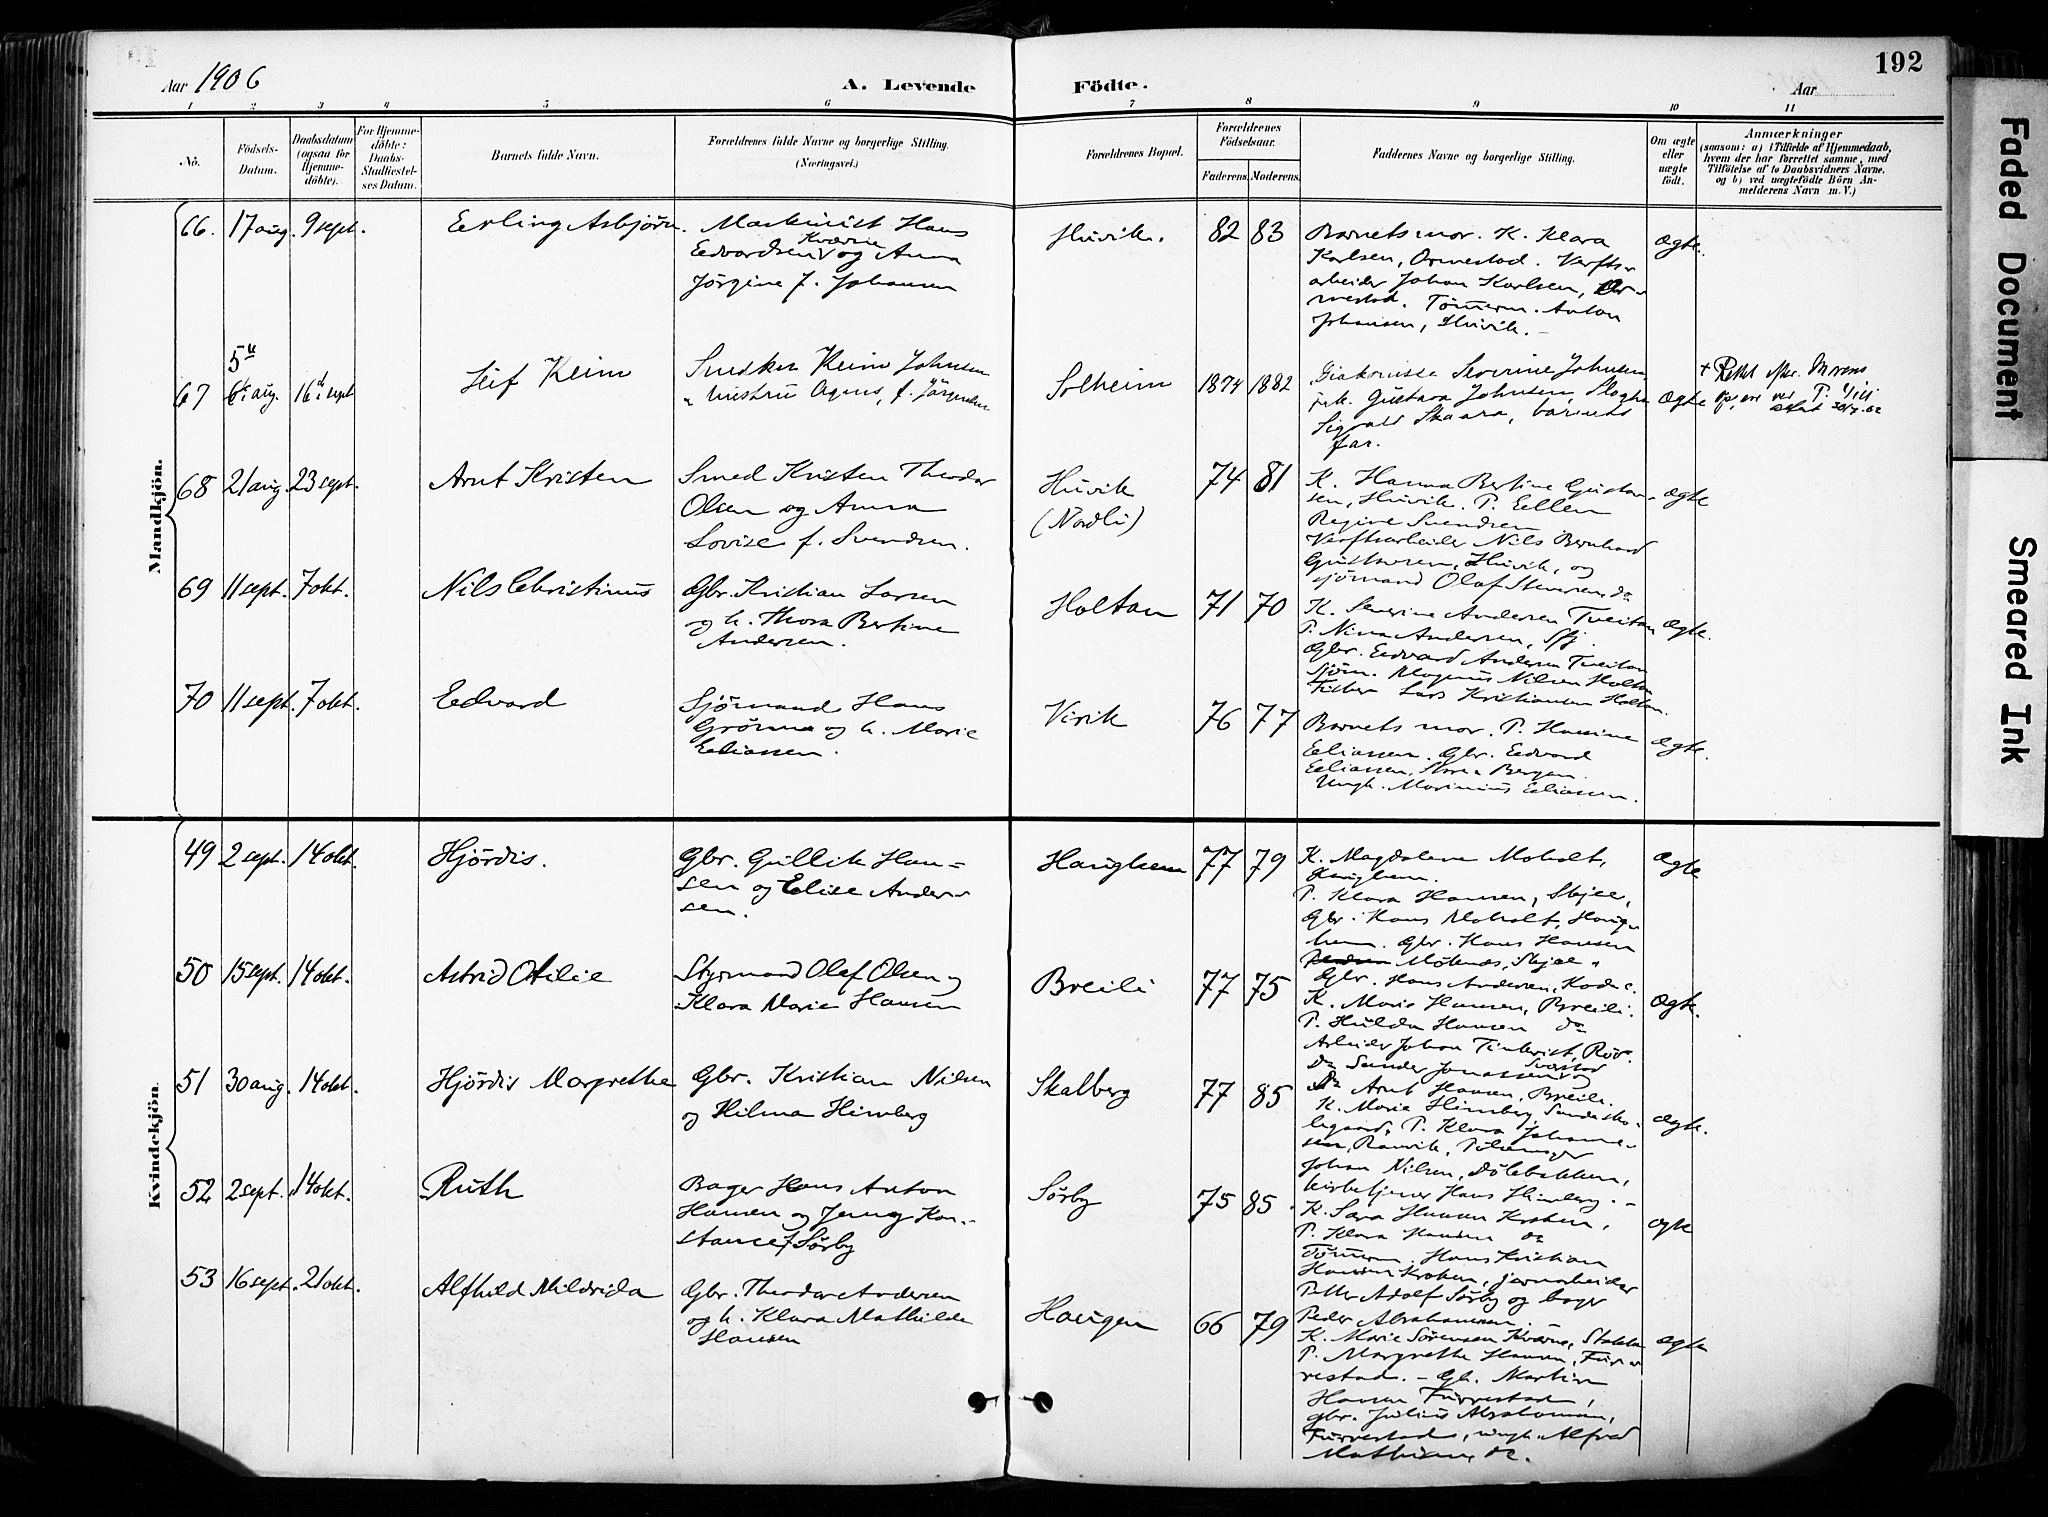 192
Aar 1906
A. Levende Födte.
Aar
1 2 3 4 5 6 7 8 9 10 11
Nô.
Födsels-
Datum.
Daabsdatum
(ogsaa for
Hjemme-
döbte).
For Hjemme-
döbte:
Daabs-
Stadfæstel-
ses Datum.
Barnets fulde Navn.
Forældrenes fulde Navne og borgerlige Stilling.
(Næringsvei.)
Forældrenes Bopæl.
Forældrenes
Födselsaar.
Faderens. Moderens.
Faddernes Navne og borgerlige Stilling.
Om ægte
eller
uægte
födt.
Anmærkninger
(saasom: a) i Tilfælde af Hjemmedaab,
hvem der har forrettet samme, med
Tilföielse af to Daabsvidners Navne,
og b) ved uægtefödte Börn An-
melderens Navn m. V.)
Mandkjön.
66. 17 aug. 9 sept. Erling Asbjörn.
Maskinist Hans
Edvardsen Kværne og Anna
Jörgine f. Johansen
Huvik. 82 83
Barnets mor. K. Klara
Karlsen, Ormestad. Verfts-
arbeider Johan Karlsen, Or-
mestad. Tömmerm. Anton
Johansen, Huvik.
Ægte.
5
67 6 aug. 16 sept Leif Keim
Snedker Keim Johnsen
Agnes, f. Jörgensen
Solheim 1874 1882
Severine Johnsen
Gustava Johnsen,
Sigvald Skaara, barnets
far.
Ægte
68 21 aug. 23 sept. Arnt Kristen
Smed Kristen Theodor
Olsen og Anna
Lovise f. Svendsen.
Huvik
(Nordli)
74 81
K. Hanna Bertine Gustav-
sen, Huvik. P. Ellen
Regine Svendsen
Verftsarbeider Nils Bernhard
Gustavsen, Huvik, og
sjömand Olaf do
Ægte
69 11 sept. 7 okt. Nils Christinus
Gbr. Kristian Larsen
og h. Thora Bertine
Andersen.
Holtan 71 70
K. Severine Andersen Tveitan
P. Nina Andersen,
Gbr. Edvard Andersen Tveitan
Sjöm. Magnus Nilsen Holtan
Fisker Lars Kristiansen Holtan.
Ægte.
70 11 sept. 7 okt. Edvard
Sjömand Hans
og h. Marie
Eliassen.
Virik 76 77
Barnets mor. P. Hansine
Eliassen. Gbr. Edvard
Eliassen, Bergan.
Ungk. Marinius Eliassen.
Ægte.
Kvindekjön
49 2 sept. 14 okt. Hjördis.
Gbr. Gullik Han-
sen og Elise Ander-
sen.
Haughem 77 79
K. Magdalene Moholt,
Haughem.
P. Klara Hansen, Skjee,
Gbr. Hans Moholt, Haug-
hem. Gbr. Hans Hansen
Skjee.
Gbr. Hans Andersen,
Ægte
50 15 sept. 14 okt. Astrid Otilie
Styrmand Olaf Olsen og
Klara Marie Hansen
Breili 77 75
K. Marie Hansen, Breili.
P. Hulda Hansen do
Arbeider Johan
Do Sander
Do Arnt Hansen, Breili.
Ægte.
51 30 aug. 14 okt. Hjördis Margrethe
Gbr. Kristian Nilsen
og Hilma Himberg
Skalberg 77 85
K. Marie Himberg,
P. Klara Johanne-
sen,
Johan Nilsen, Dölebakken,
kirketjener Hans Himberg.
Ægte.
52 2 sept. 14 okt. Ruth
Bager Hans Anton
Hansen og Jenny Kon-
stance f Sörby
Sörby 75 85.
K. Sara Hansen Kroken,
P. Klara Hansen do
Tömmerm. Hans Kristian
Hansen Kroken, jernarbeider
Petter Adolf Sörby og bager
Peder Abrahamsen.
Ægte
53 16 sept. 21 okt. Alfhild Mildrida
Gbr. Theodor Andersen
og h. Klara Mathilde
Hansen
Haugen 66 79
K. Marie Sörensen Kværne,
P. Margrethe Hansen, Fur-
restad. Gb. Martin
Hansen Furrestad,
gbr. Julius Abrahamsen,
Furrestad, ungk. Alfred
Mathisen, do.
Ægte
Faded Document
Smeared Ink